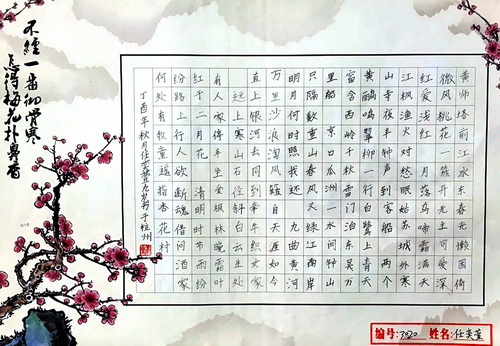 黄师塔前江水东春光懒困倚
微风桃花一簇开无主可爱深
红爱浅红 月落乌啼霜满天
江枫渔火对愁眠姑苏城外寒
山寺夜半钟声到客船 两个
黄鹂鸣翠柳一行白鹭上青天
窗含西岭千秋雪门泊东吴万
里船 京口瓜洲一水间钟山
只隔数重山春风又绿江南岸
明月何时照我还 九曲黄河
万里沙浪淘风簸自天涯如今
直上银河去同到牵牛织女家
远上寒山石径斜白云生处
有人家停车坐爱枫林晚霜叶
红于二月花 清明时节雨纷
纷路上行人欲断魂借问酒家
何处有牧童遥指杏花村
丁酉年秋月任奕萱九岁书于杭州
不經一番彻骨寒
怎得梅花扑鼻香
编号:3020 姓名:任奕萱